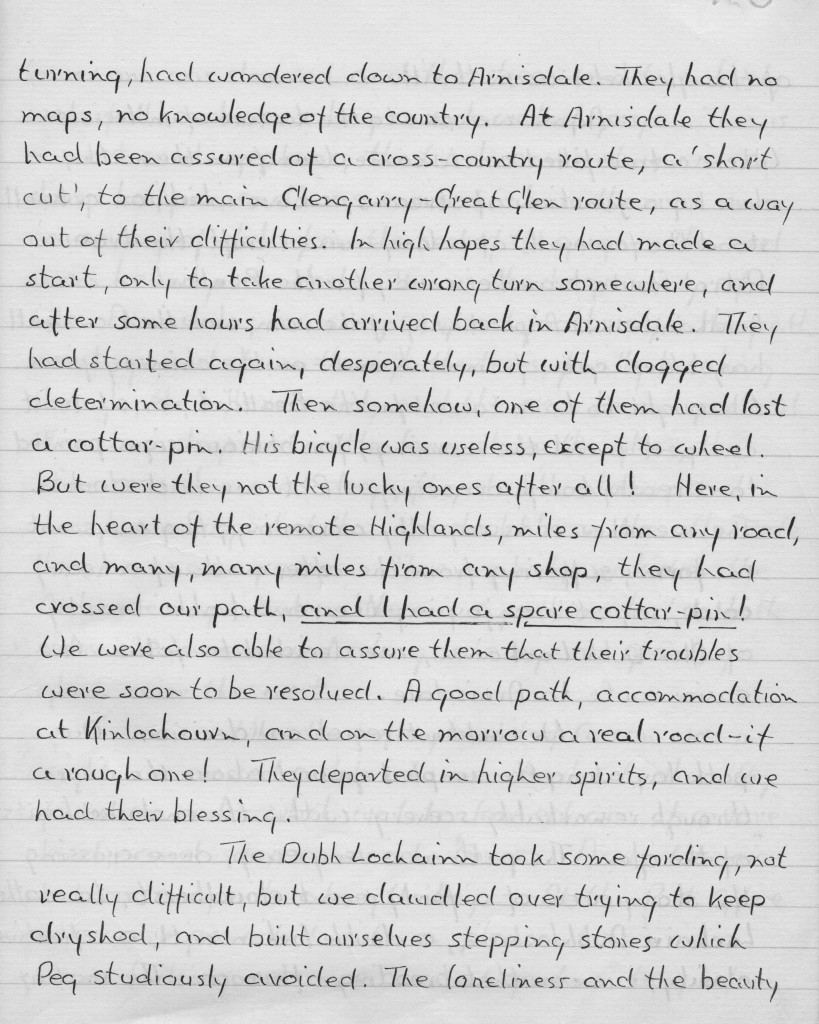 turning, had wandered down to Arnisdale. They had no
maps, no knowledge of the country. At Arnisdale they
had been assured of a cross-country route, a 'short
cut', to the main Glengarry-Great Glen route, as a way
out of their difficulties. In high hopes they had made a
start, only to take another wrong turn somewhere, and
after some hours had arrived back in Arnisdale. They
had started again, desperately, but with dogged
determination. Then somehow, one of them had lost
a cottar-pin. His bicycle was useless, except to wheel.
But were they not the lucky ones after all! Here, in
the heart of the remote Highlands, miles from any road,
and many, many miles from any shop, they had
crossed our path, and I had a spare cottar-pin!
We were also able to assure them that their troubles
were soon to be resolved. A good path, accommodation
at Kinlochourn, and on the morrow a real road-if
a rough one! They departed in higher spirits, and we
had their blessing.
The Dubh Lochainn took some fording, not
really difficult, but we dawdled over trying to keep
dryshod, and built ourselves stepping stones which
Peg studiously avoided. The loneliness and the beauty